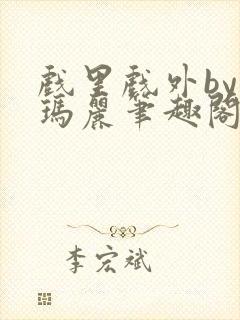 戲里戲外by
瑪麗筆趣閣
李宏斌